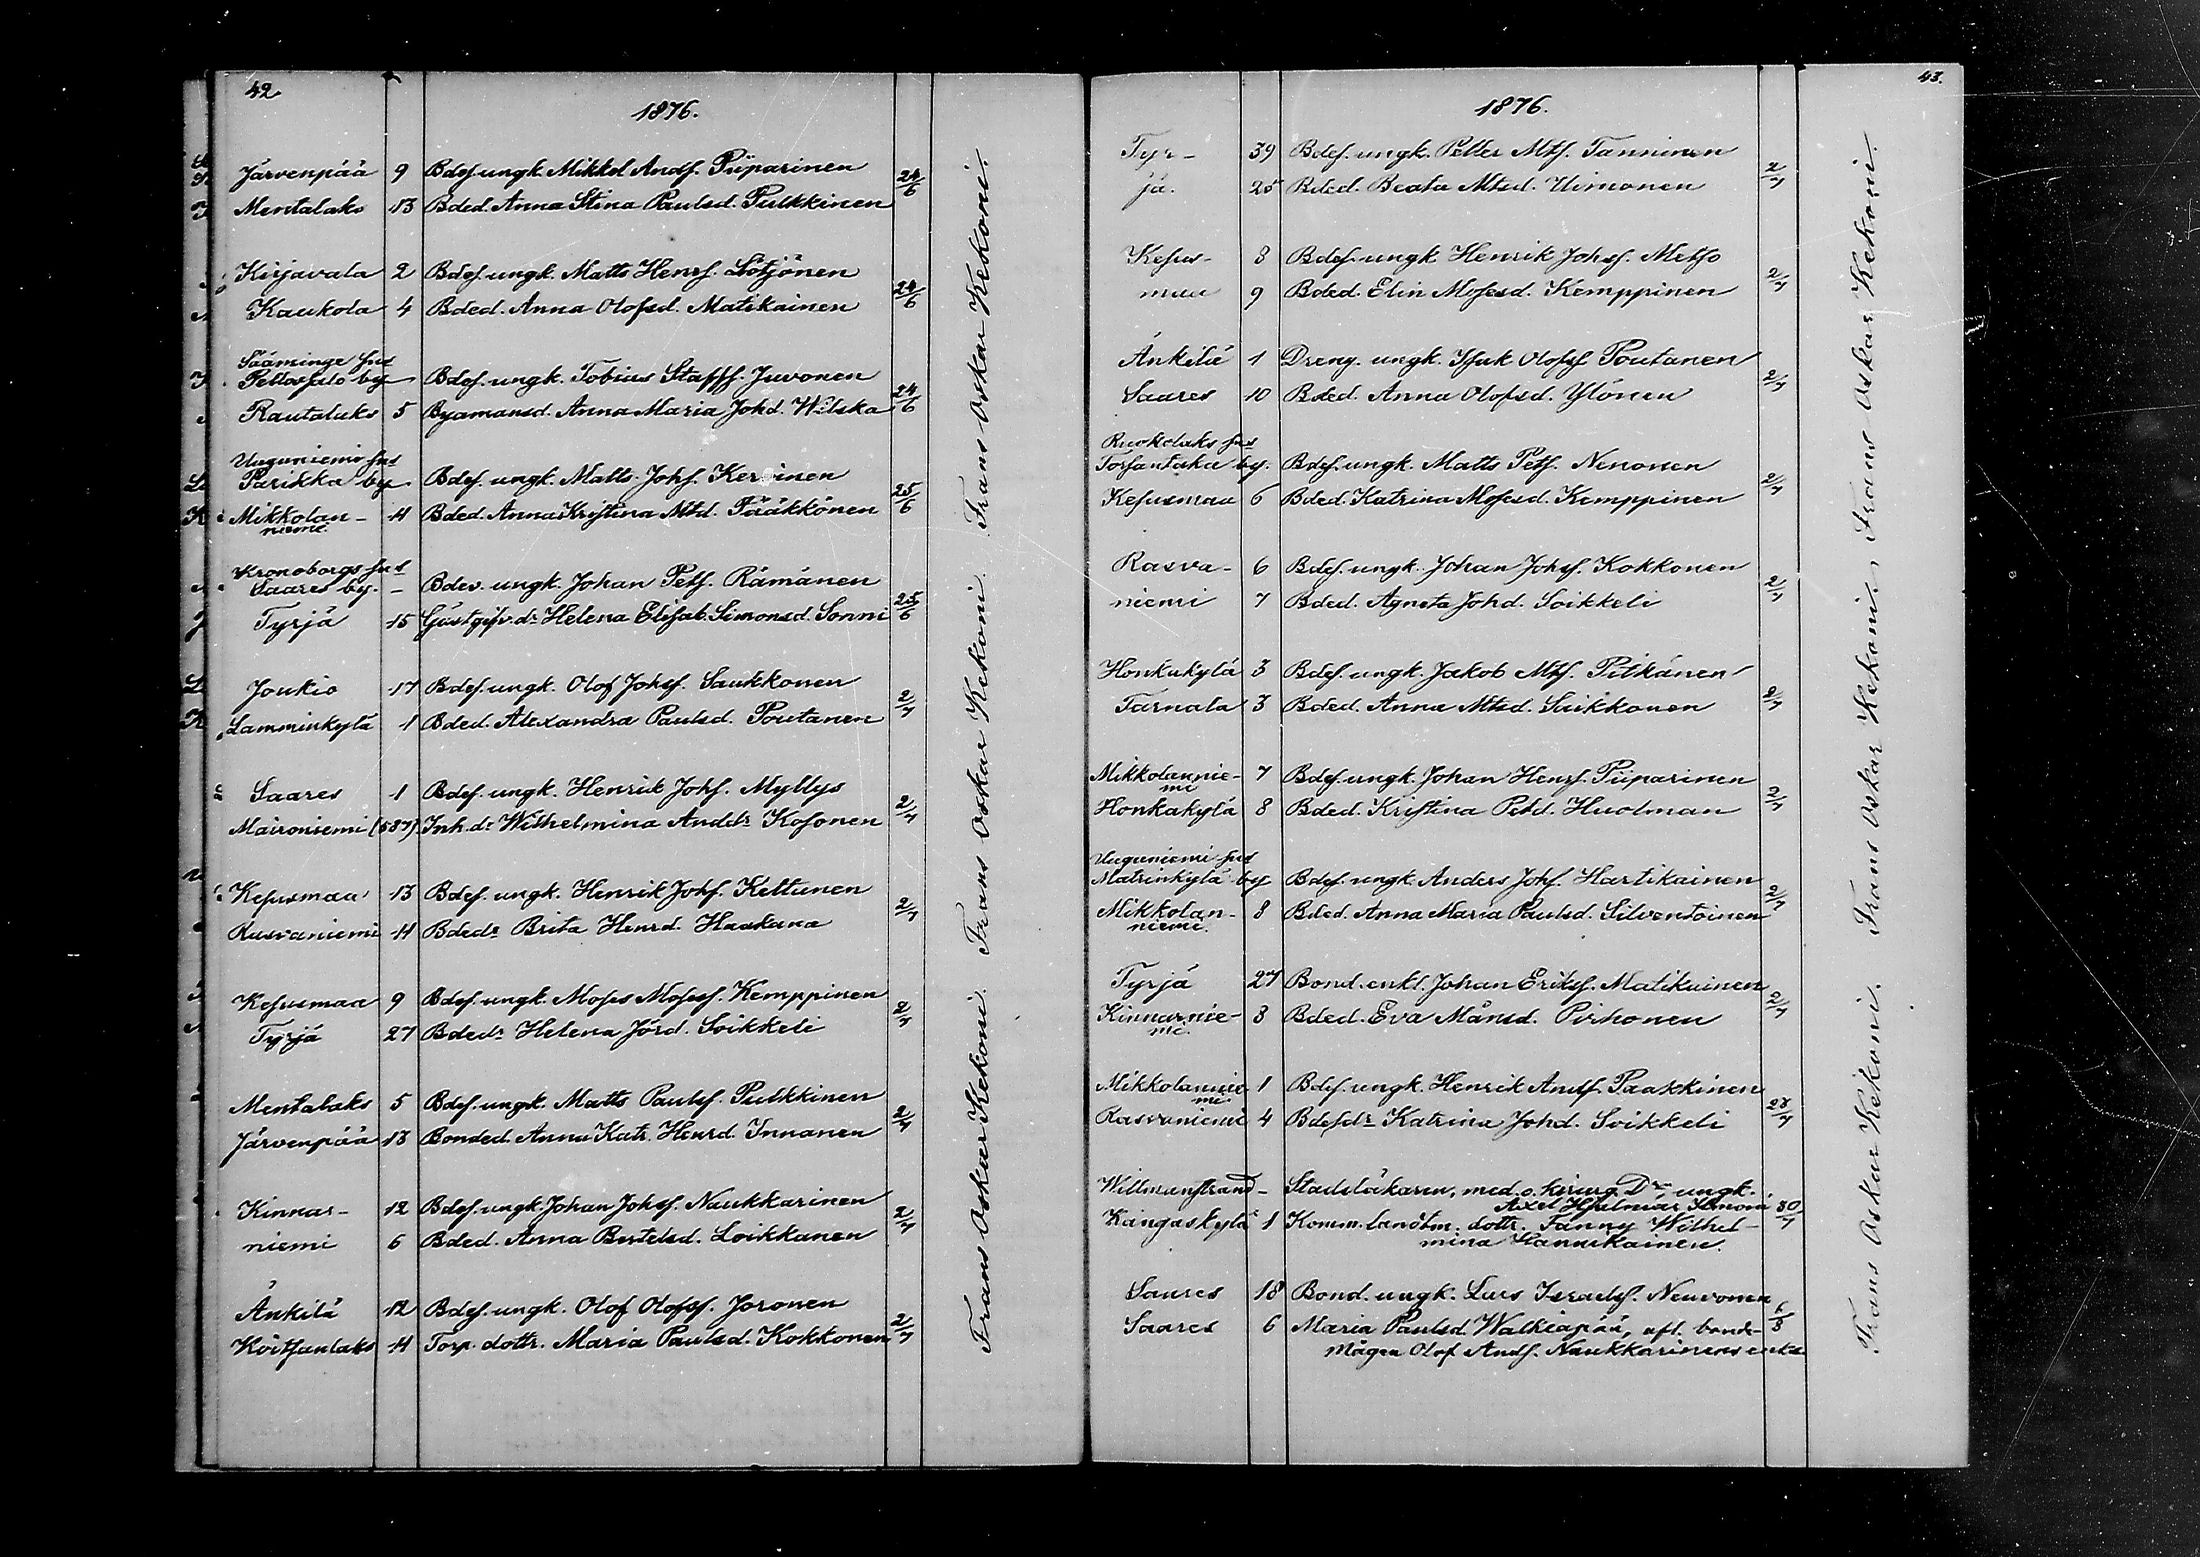 42
1876.
Järvenpää 9 Bdes. ungk. Mikkel Ands. Piiparinen 24/6
Mentalaks 13 Bded. Anna Stina Paulsd. Pulkkinen
Kirjavala 2 Bdes. ungk. Matts Henrs. Lötjönen 24/6
Kaukola 4 Bded. Anna Olofsd. Matikainen
Sääminge sns
Pellossalo by Bdes. ungk. Tobias Staffs. Juvonen 24/6
Rautalaks 5 Byamansd. Anna Maria Johd. Wilska
Uuguniemi sns
Parikka by Bdes. ungk. Matts Johs. Kervinen 25/6
Mikkolan- 4 Bded. Anna Kristina Mtd. Pääkkönen
niemi
Kronoborgs sns
Saares by. - Bdes. ungk. Johan Pets. Rämänen 25/6
Tyrjä 15 Gästgifv.dr Helena Elisab. Simonsd. Sonni
Joukio 17 Bdes. ungk. Olof Johss. Saukkonen 2/7
Lamminkylä 1 Bded. Alexandra Paulsd. Poutanen
Saares 1 Bdes. ungk. Henrik Johs. Myllys 2/7
Maironiemi (587) Inh. dr Wilhelmina Anddr Kosonen
Kesusmaa 13 Bdes. ungk. Henrik Johs. Keltunen 2/7
Rasvaniemi 14 Bdedr Brita Henrd. Haakana
Kesusmaa 9 Bdes. ungk. Moses Mosess. Kemppinen 2/7
Tyrjä 27 Bdedr Helena Jörd. Soikkeli
Mentalaks 5 Bdes. ungk. Matts Paulss. Pulkkinen 2/7
Järvenpää 13 Bonded. Anna Katr. Henrd. Innanen
Kinnar- 12 Bdes. ungk. Johan Johss. Naukkarinen 2/7
niemi 6 Bded. Anna Bertelsd. Loikkanen
Änkilä 12 Bdes. ungk. Olof Olofss. Joronen 2/7
Koitsanlaks 14 Torp. dottr. Maria Paulsd. Kokkonen
Frans Oskar Kekoni. Frans Oskar Kekoni. Frans Oskar Kekoni.
43.
1876.
Tyr- 39 Bdes. ungk. Petter Mts. Tanninen 2/7
jä. 25 Bded. Beata Mtsd. Uimonen
Kesus- 8 Bdes. ungk. Henrik Johss. Metso 2/7
maa 9 Bded. Elin Mosesd. Kemppinen
Änkilä 1 Dreng. ungk. Isak Olofss. Poutanen 2/7
Saares 10 Bded. Anna Olofsd. Ylönen
Ruokolaks sns
Torsantaka by. Bdes. ungk. Matts Pets. Nenonen 2/7
Kesusmaa 6 Bded. Katrina Mosesd. Kemppinen
Rasva- 6 Bdes. ungk. Johan Johss. Kokkonen 2/7
niemi 7 Bded. Agneta Johd. Soikkeli
Honkakylä 3 Bdes. ungk. Jakob Mts. Pitkänen 2/7
Tarnala 3 Bded. Anna Mtsd. Saikkonen
Mikkolannie- 7 Bdes. ungk. Johan Henrs. Piiparinen 2/7
mi
Honkakylä 8 Bded. Kristina Petd. Huolman
Uuguniemi sns
Matrinkylä by Bdes. ungk. Anders Johs. Hartikainen 2/7
Mikkolan- 8 Bded. Anna Maria Paulsd. Silventoinen
niemi.
Tyrjä 27 Bond. enkl. Johan Erikss. Matikainen 2/7
Kinnarnie- 3 Bded. Eva Månsd. Pirhonen
mi.
Mikkolannie 1 Bdes. ungk. Henrik Ands. Paakkinen 23/7
mi.
Rasvaniemi 4 Bdesdr Katrina Johd. Soikkeli
Willmanstrand - Stadsläkaren, med. o. kirurg. Dr, ungk.
Axel Hjalmar Simola 30/7
Kangaskylä 1 Komm. landtm. dottr. Fanny Wilhel-
mina Hannikainen.
Saares 18 Bond. ungk. Lars Israelss. Neuvonen 6/8
Saares 6 Maria Paulsd. Walkiapää, afl. bonde-
mågen Olof Ands. Naukkarinens enka
Frans Oskar Kekoni. Frans Oskar Kekoni. Frans Oskar Kekoni.